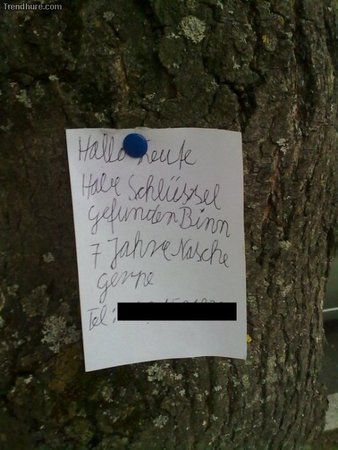 Trendhure.com
Hallo Leute
Habe Schlüssel
gefunden Binn
7 Jahre Nasche
gerne
Tel: